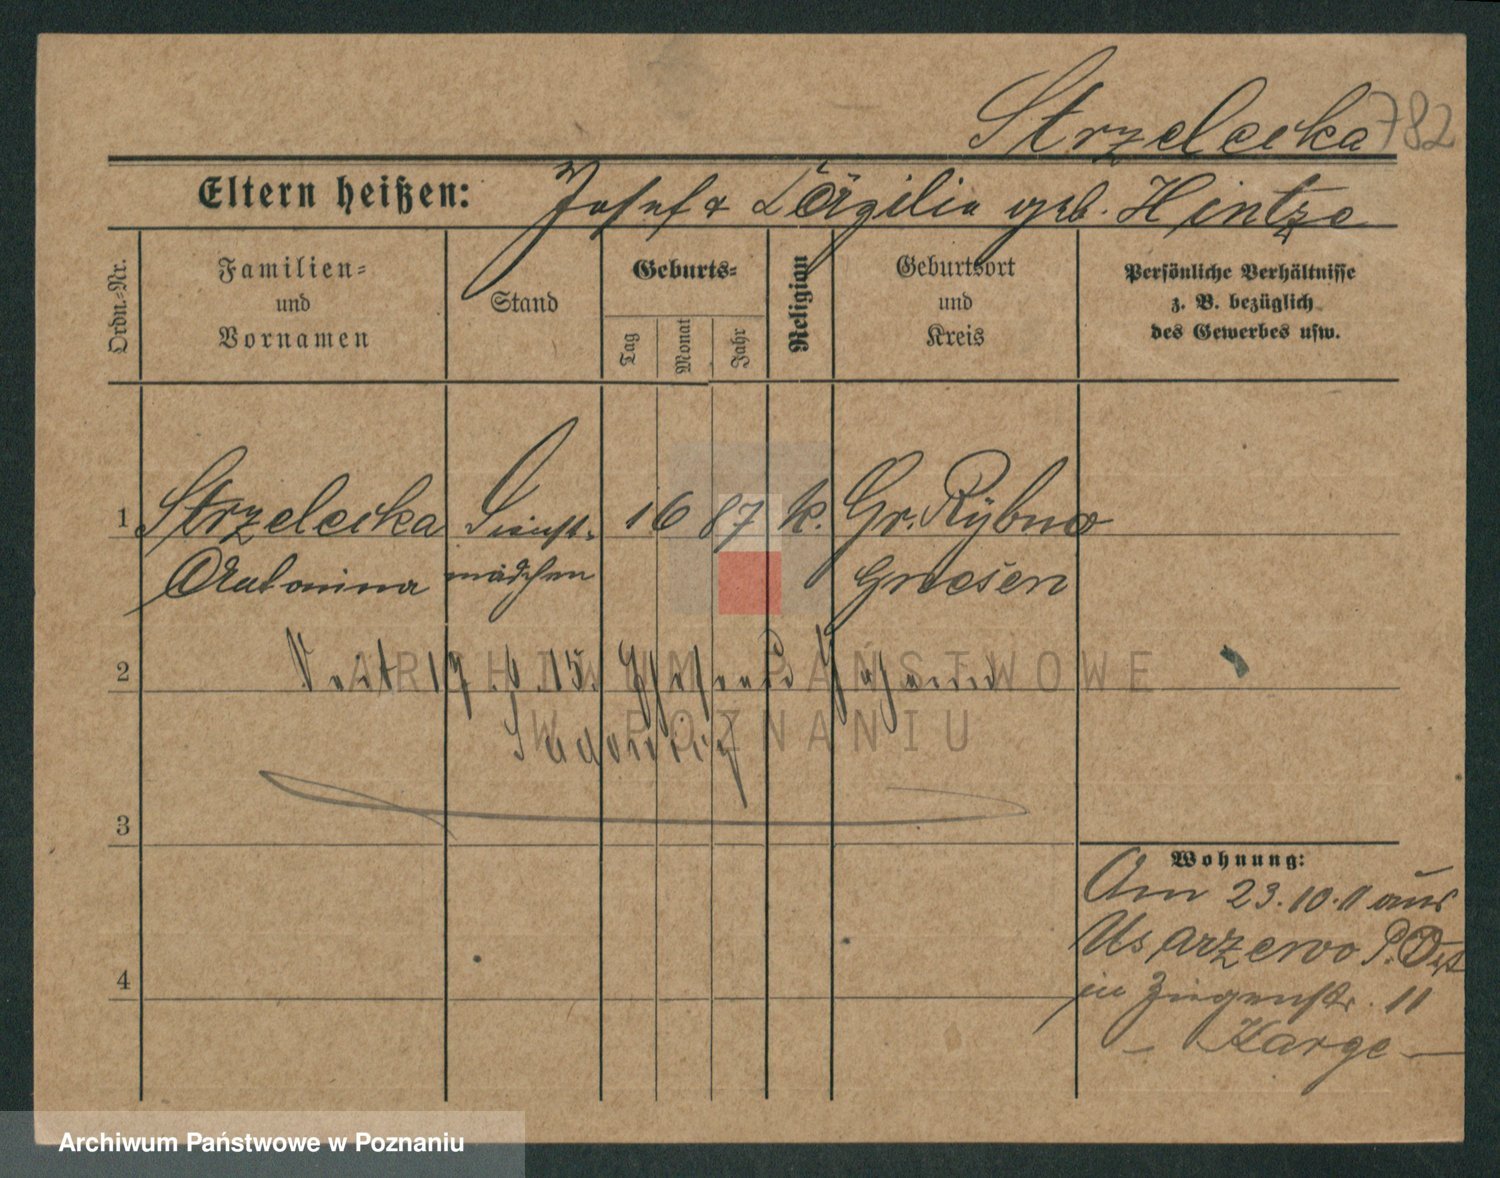 Strzelecka 782
Eltern heißen: Josef & Cäzilia geb. Hintze
Ordn.-Nr.
Familien-
und
Vornamen
Stand
Geburts-
Tag
Monat
Jahr
Religion
Geburtsort
und
Kreis
Persönliche Verhältnisse
z. B. bezüglich
des Gewerbes usw.
1 Strzelecka Dienst- 1 6 87 k. Gr. Rybno
Antonina mädchen Gnesen
2 17.6.15.
3
Wohnung:
Am 23.10.11 aus
Usarzewo P. Ost
4
in Ziegenstr. 11
— Karge —
ARCHIWUM PAŃSTWOWE
W POZNANIU
Archiwum Państwowe w Poznaniu